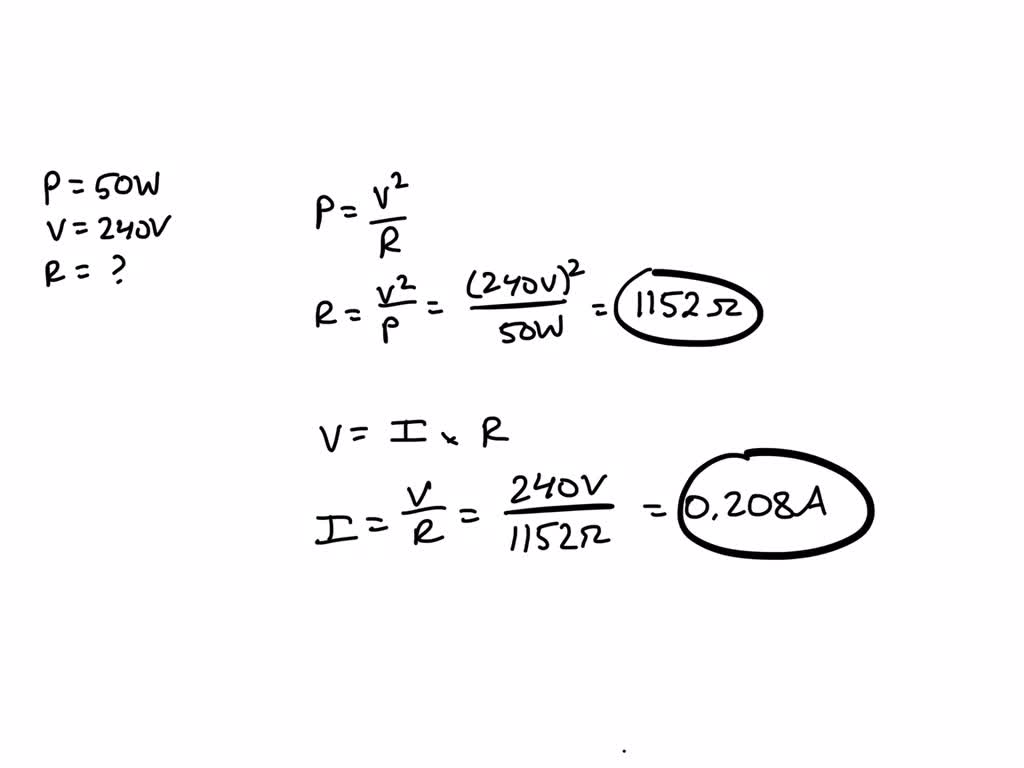 P = 50W
V = 240V
R = ?
P = V²/R
R = V²/P = (240V)²/50W = 1152Ω
V = I × R
I = V/R = 240V/1152Ω = 0.208A